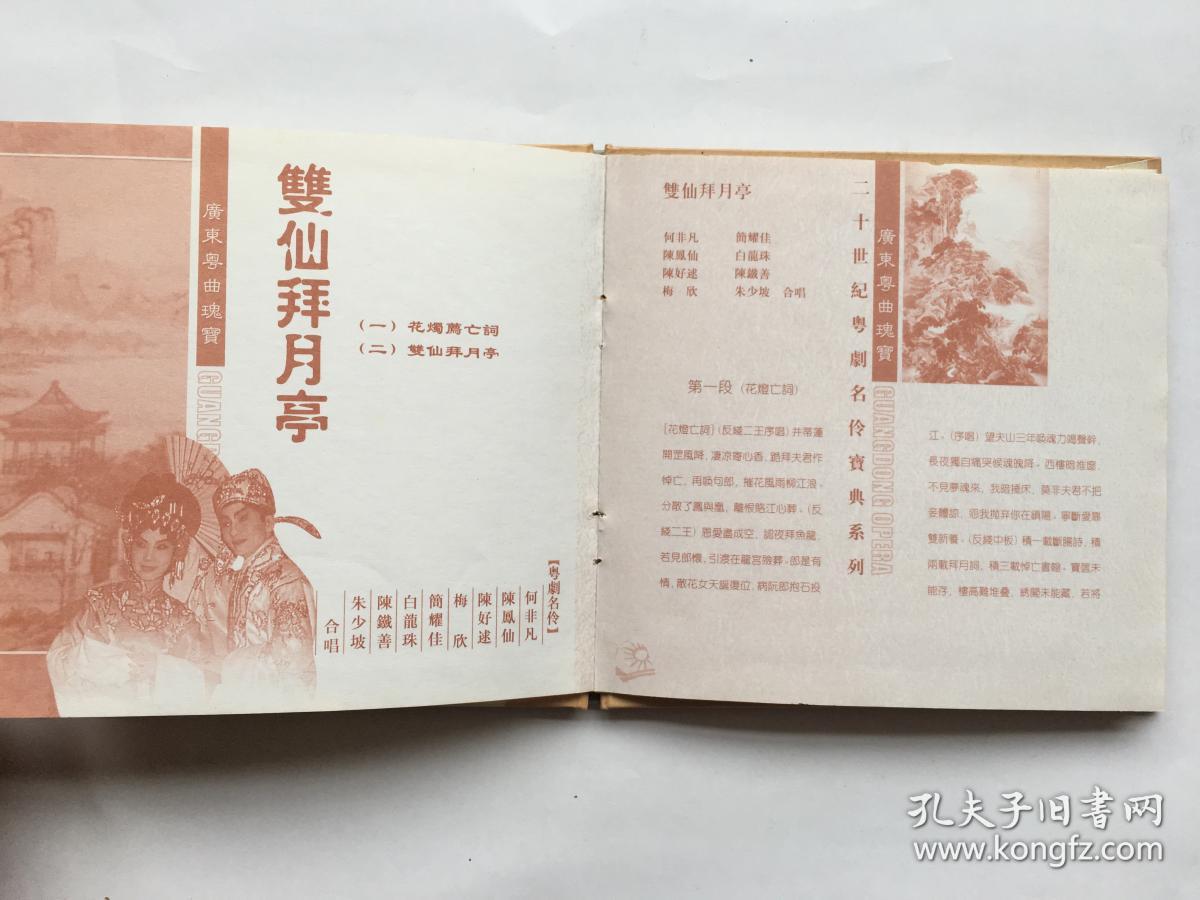 廣東粤曲瑰寶
雙仙拜月亭
（一）花燭薦亡詞
（二）雙仙拜月亭
【粤劇名伶】
何非凡
陳鳳仙
陳好逑
梅 欣
簡耀佳
白龍珠
陳鐵善
朱少坡
合唱
雙仙拜月亭
何非凡 簡耀佳
陳鳳仙 白龍珠
陳好逑 陳鐵善
梅 欣 朱少坡 合唱
第一段（花燈亡詞）
[花燈亡詞]（反綫二王序唱）井蒂蓮
開罡風降，凄凉寄心香，跪拜夫君作
悼亡，再喚句郎，摧花風雨柳江浪，
分散了鳳與凰，離恨賂江心葬，（反
綫二王）恩愛盡成空，認夜拜魚龍，
若見郎懷，引渡在龍宮險葬，郎是有
情，散花女天鑑復位，病阮郎抱石投
二十世紀粤劇名伶寶典系列
廣東粤曲瑰寶
GUANGDONG OPERA
江，（序唱）望夫山三年喚魂力竭聲幹，
長夜獨自痛哭候魂魄降，西樓暗推窗，
不見夢魂來，我暗捶床，莫非夫君不把
妾體諒，怨我拋弃你在鎮陽，寧斷愛靠
雙新養，（反綫中板）積一載斷腸詩，積
兩載拜月詞，積三載悼亡書翰，寶匱未
能存，樓高難堆叠，綉闥未能藏，若將
孔夫子旧书网
www.kongfz.com